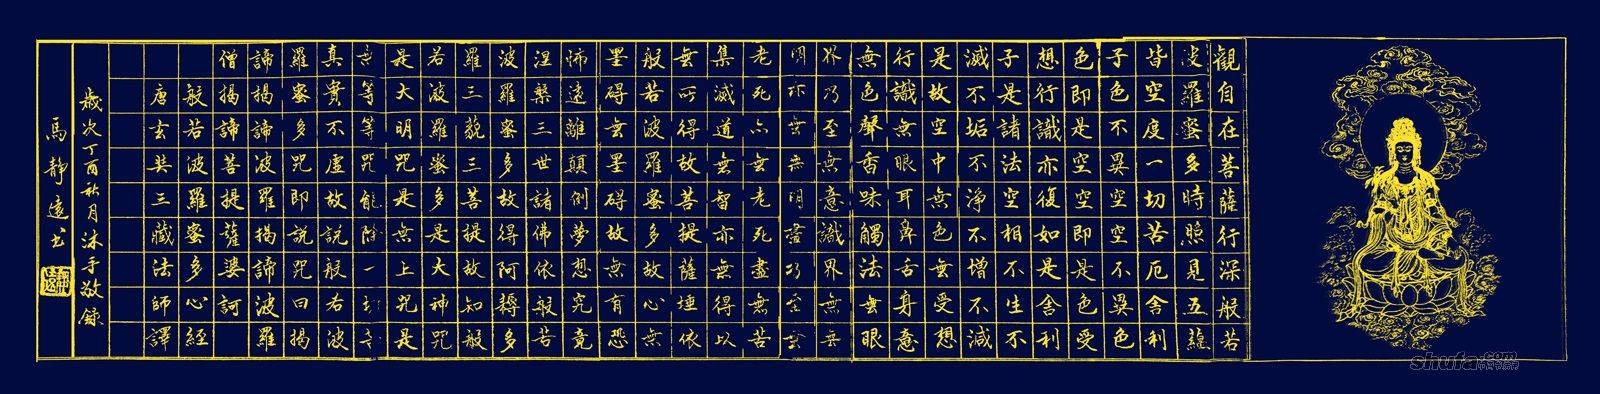 觀自在菩薩行深般若
波羅蜜多時照見五蘊
皆空度一切苦厄舍利
子色不異空空不異色
色即是空空即是色受
想行識亦復如是舍利
子是諸法空相不生不
滅不垢不淨不增不減
是故空中無色无受想
行識无眼耳鼻舌身意
無色聲香味觸法无眼
界乃至無意識界無无
明亦无無明盡乃至无
老死亦无老死盡無苦
集滅道无智亦無得以
無所得故菩提薩埵依
般若波羅蜜多故心無
罣碍无罣碍故無有恐
怖遠離顛倒夢想究竟
涅槃三世諸佛依般若
波羅蜜多故得阿耨多
羅三藐三菩提故知般
若波羅蜜多是大神咒
是大明咒是無上咒是
無等等咒能除一切苦
真實不虛故說般若波
羅蜜多咒即說咒曰揭
諦揭諦波羅揭諦波羅
僧揭諦菩提薩婆訶
般若波羅蜜多心經
唐玄奘三藏法師譯
歲次丁酉秋月沐手敬録
馬靜遠书
shufa.com